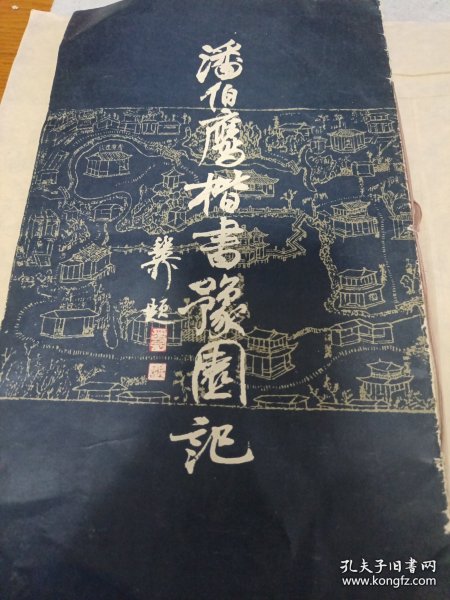 潘伯鹰楷书豫园记
题
孔夫子旧书网
www.kongfz.com